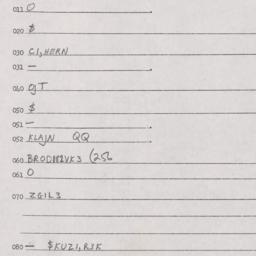 011 0
020 $
030 CI,HERN
031 —
040 gT
050 $
051 —
052 KLAJN QQ
060 BRODM2VK3 (256
061 0
070 ZGIL3
080 — $KUZI,RJK